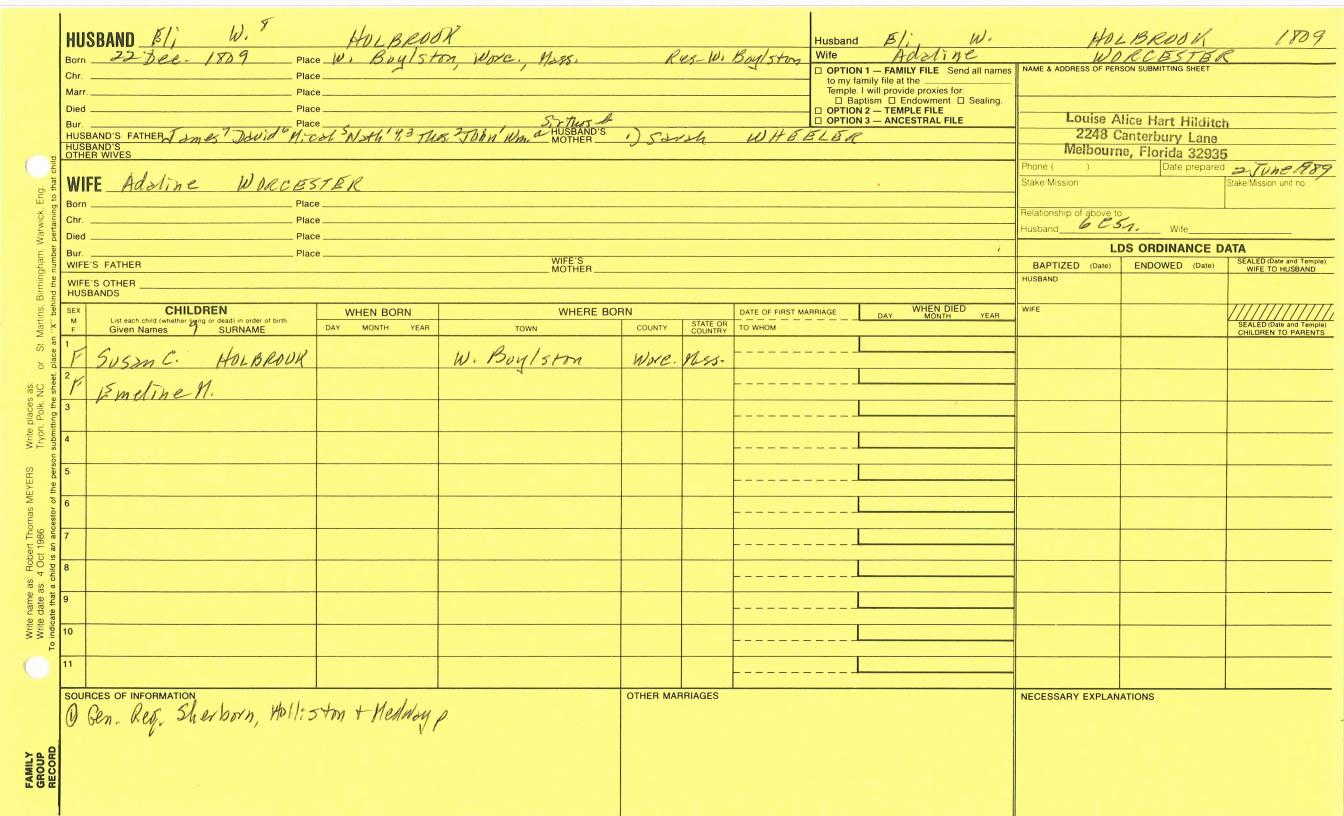 HUSBAND Eli W. 8 HOLBROOK
Born 22 Dec. 1809 Place W. Boylston, Worc., Mass. Res-W. Boylston
Chr. Place
Marr. Place
Died Place
Bur. Place
HUSBAND'S FATHER James 7 David 6 Micah 5 Nath'l 4,3 Thos. 2 John 1 Wm. a HUSBAND'S MOTHER 1) Sarah WHEELER
HUSBAND'S OTHER WIVES
WIFE Adaline WORCESTER
Born Place
Chr. Place
Died Place
Bur. Place
WIFE'S FATHER WIFE'S MOTHER
WIFE'S OTHER HUSBANDS
Husband Eli W. HOLBROOK 1809
Wife Adaline WORCESTER
☐ OPTION 1 — FAMILY FILE Send all names
to my family file at the
Temple. I will provide proxies for:
☐ Baptism ☐ Endowment ☐ Sealing.
☐ OPTION 2 — TEMPLE FILE
☐ OPTION 3 — ANCESTRAL FILE
NAME & ADDRESS OF PERSON SUBMITTING SHEET
Louise Alice Hart Hilditch
2248 Canterbury Lane
Melbourne, Florida 32935
Phone ( ) Date prepared 2 June 1989
Stake Mission Stake Mission unit no.
Relationship of above to
Husband 6 C 5 r. Wife
LDS ORDINANCE DATA
BAPTIZED (Date) ENDOWED (Date) SEALED (Date and Temple) WIFE TO HUSBAND
HUSBAND
WIFE
SEALED (Date and Temple) CHILDREN TO PARENTS
SEX M F
CHILDREN
List each child (whether living or dead) in order of birth
Given Names 9 SURNAME
WHEN BORN
DAY MONTH YEAR
WHERE BORN
TOWN COUNTY STATE OR COUNTRY
DATE OF FIRST MARRIAGE
TO WHOM
WHEN DIED
DAY MONTH YEAR
1 F Susan C. HOLBROOK W. Boylston Worc. Mass.
2 F Emeline M.
3
4
5
6
7
8
9
10
11
SOURCES OF INFORMATION
① Gen. Reg. Sherborn, Holliston + Medway p
OTHER MARRIAGES
NECESSARY EXPLANATIONS
Write name as: Robert Thomas MEYERS Write places as: Tryon, Polk, NC or St. Martins, Birmingham, Warwick, Eng.
Write date as: 4 Oct 1986
To indicate that a child is an ancestor of the person submitting the sheet, place an "X" behind the number pertaining to that child.
FAMILY
GROUP
RECORD